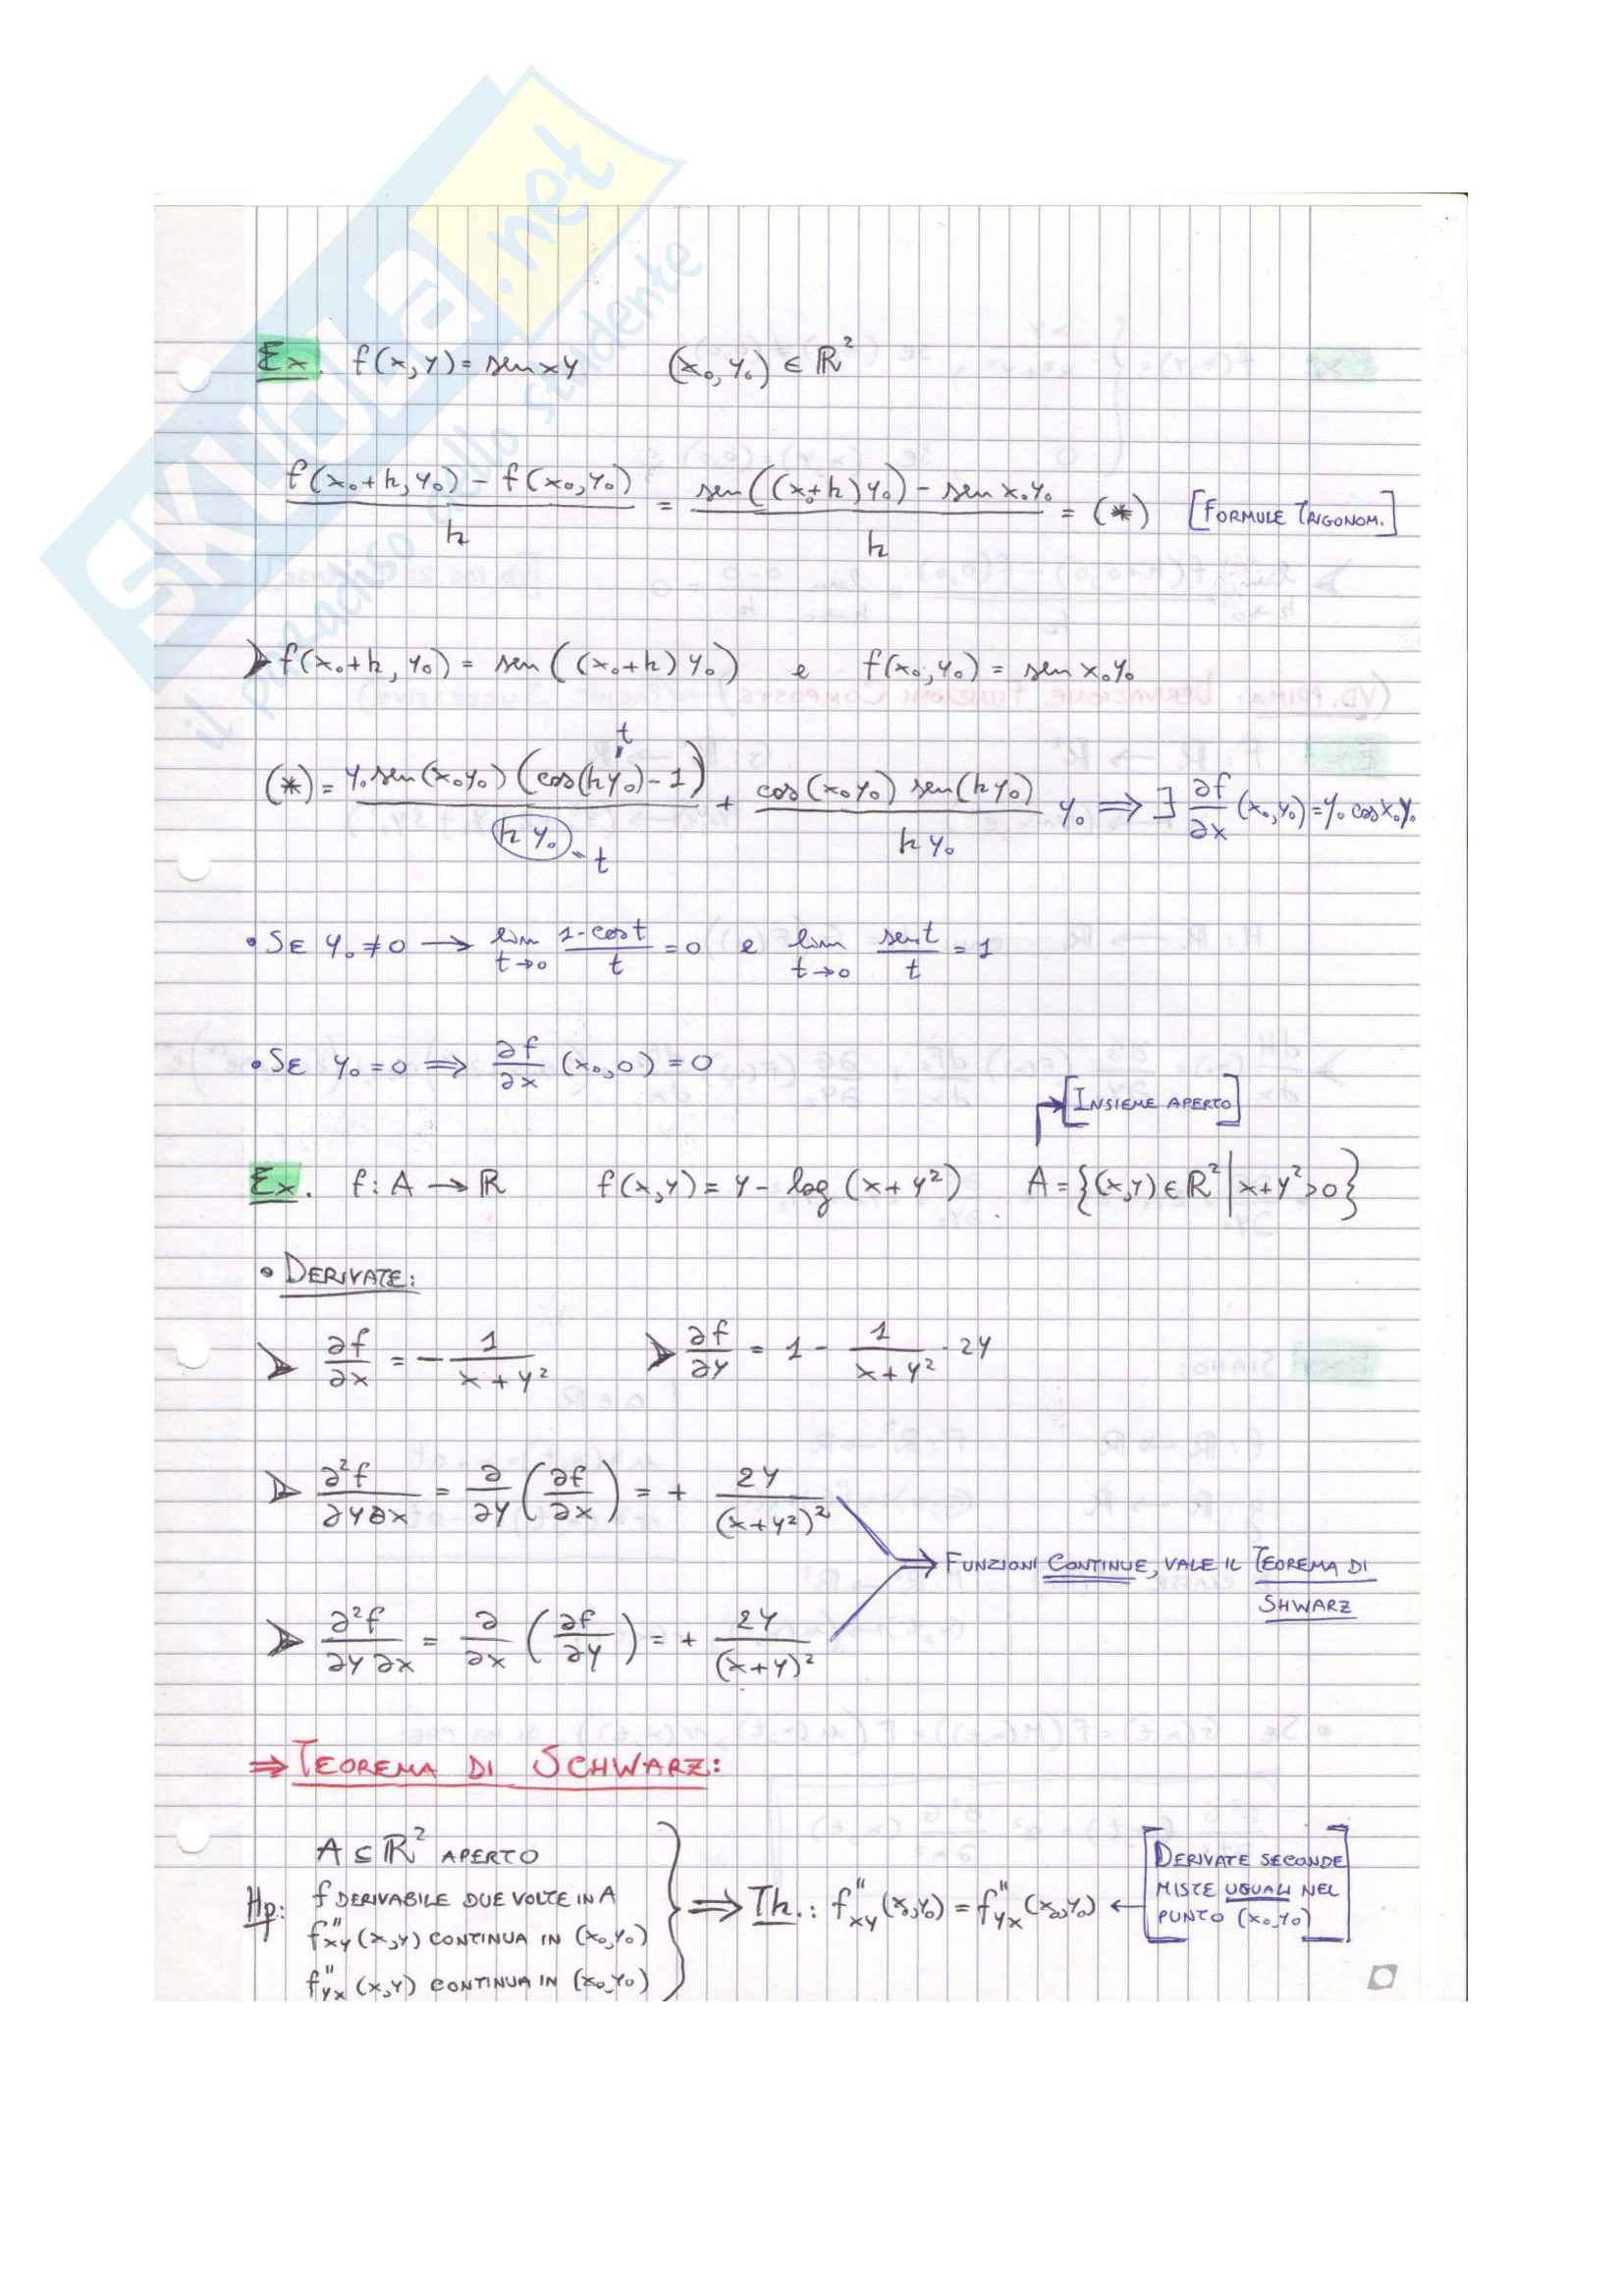 SKUOLA.net
il paradiso dello studente
Ex. f(x,y) = sen xy (x₀,y₀) ∈ ℝ²
f(x₀+h,y₀) - f(x₀,y₀) / h = sen((x₀+h)y₀) - sen x₀y₀ / h = (*) [FORMULE TRIGONOM.]
➤ f(x₀+h, y₀) = sen((x₀+h) y₀) e f(x₀,y₀) = sen x₀y₀
t
(*) = y₀ sen(x₀y₀)(cos(hy₀)-1) / h y₀ + cos(x₀y₀) sen(hy₀) / h y₀ y₀ ⇒ ∃ ∂f/∂x (x₀,y₀) = y₀ cos x₀y₀
t
• SE y₀ ≠ 0 → lim t→0 1-cos t / t = 0 e lim t→0 sen t / t = 1
• SE y₀ = 0 ⇒ ∂f/∂x (x₀,0) = 0
[INSIEME APERTO]
Ex. f: A → ℝ f(x,y) = y - log (x+y²) A = {(x,y) ∈ ℝ² | x+y²>0}
• DERIVATE:
➤ ∂f/∂x = - 1 / x+y² ➤ ∂f/∂y = 1 - 1 / x+y² · 2y
➤ ∂²f/∂y∂x = ∂/∂y (∂f/∂x) = + 2y / (x+y²)²
⇒ FUNZIONI CONTINUE, VALE IL TEOREMA DI
SHWARZ
➤ ∂²f/∂y∂x = ∂/∂x (∂f/∂y) = + 2y / (x+y)²
⇒ TEOREMA DI SCHWARZ:
Hp: A ⊆ ℝ² APERTO
f DERIVABILE DUE VOLTE IN A
f''xy (x,y) CONTINUA IN (x₀,y₀)
f''yx (x,y) CONTINUA IN (x₀,y₀)
⇒ Th.: f''xy (x₀,y₀) = f''yx (x₀,y₀) ←
[DERIVATE SECONDE
MISTE UGUALI NEL
PUNTO (x₀,y₀)]